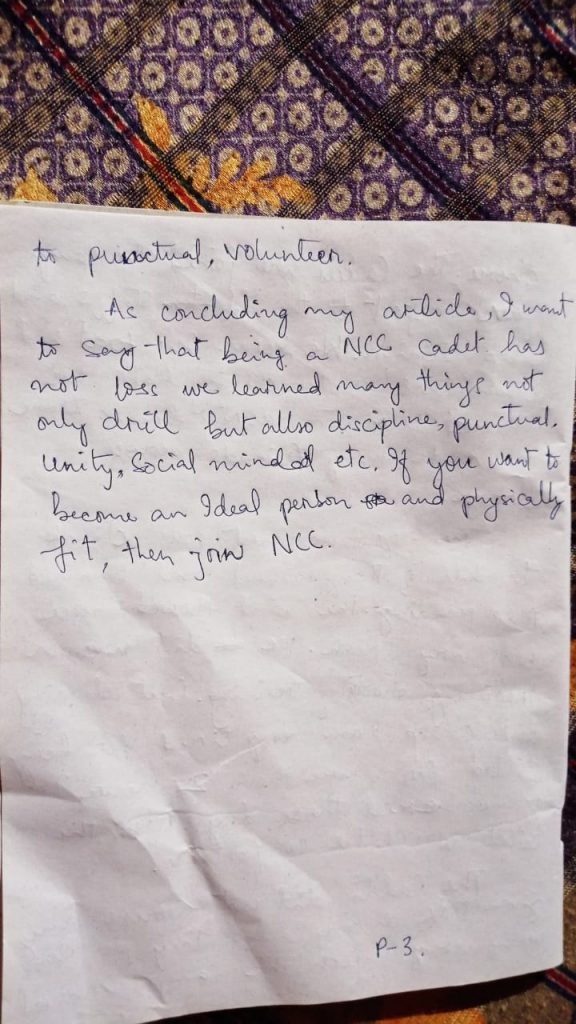 to punctual, volunteer.
As concluding my article, I want
to say that being a NCC cadet has
not loss we learned many things not
only drill but allso discipline, punctual,
unity, Social minded etc. If you want to
become an Ideal person and physically
fit, then join NCC.
P-3.